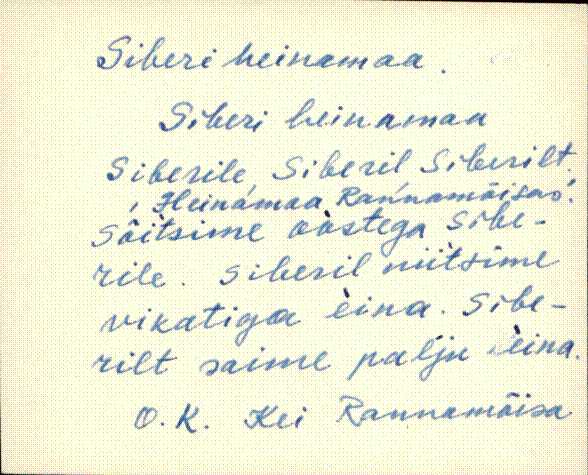 Siberi heinamaa.
Siberi heinamaa
Siberile, Siberil Siberilt.
Heinamaa Rannamõisas.
Sõitsime oostega Sibe-
rile. Siberil niitsime
vikatiga eina. Sibe-
rilt saime palju eina.
O.K. Kei Rannamõisa